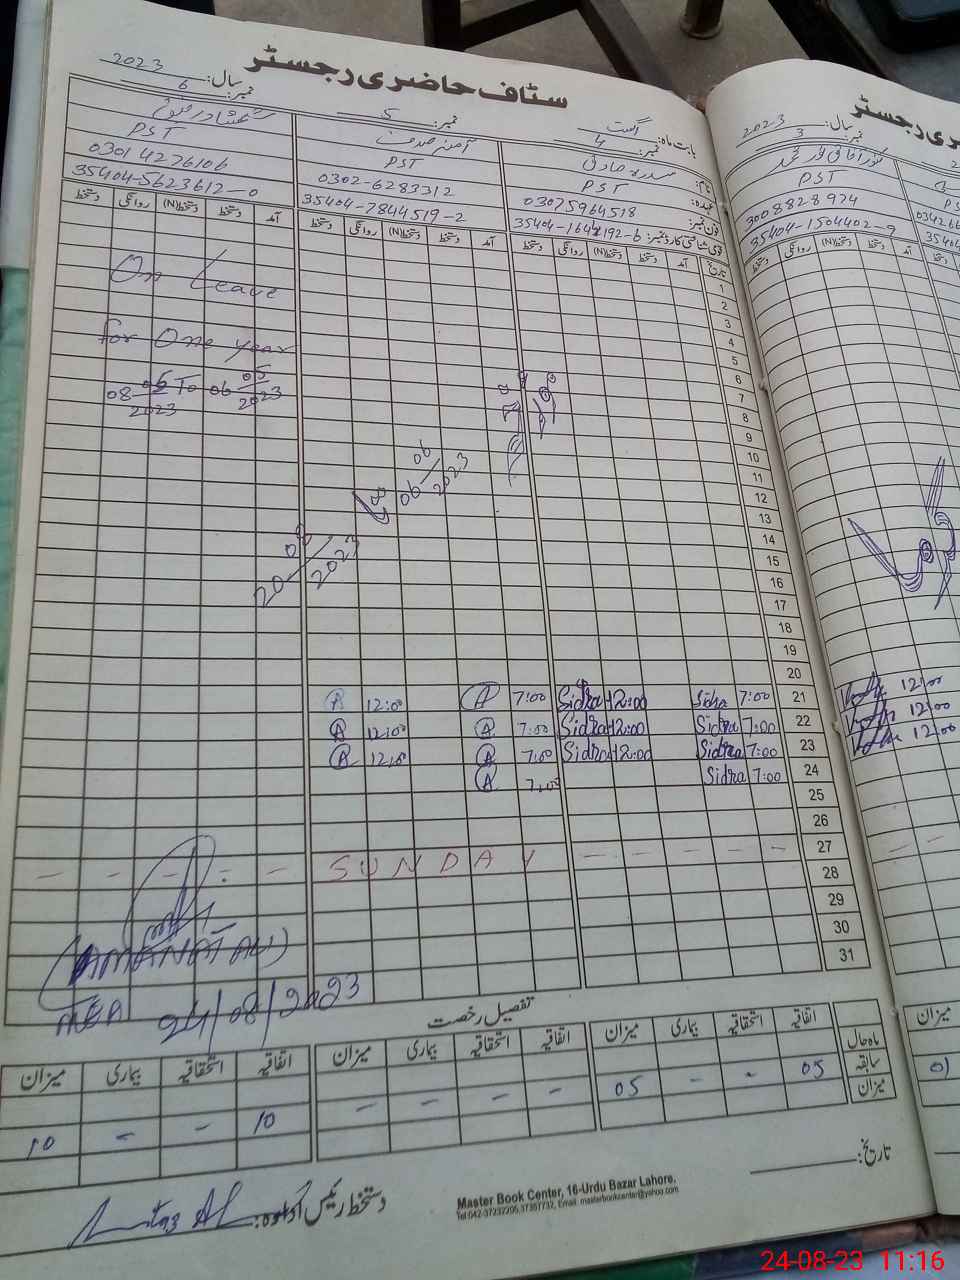 سٹاف حاضری رجسٹر
بابت ماہ: اگست
سال: 2023
نمبر: 4
نمبر: 5
نمبر: 6
نام: سدرہ صادق
آمنہ صدف
عہدہ: PST
PST
PST
فون نمبر: 03075964518
0302-6283312
0301 4276106
قومی شناختی کارڈ نمبر: 35404-1642192-6
35404-7844519-2
35404-5623612-0
تاریخ آمد دستخط دستخط(N) روانگی دستخط
آمد دستخط دستخط(N) روانگی دستخط
آمد دستخط دستخط(N) روانگی دستخط
1
2
3
4
5
6
7
8
9
10
11
12
13
14
15
16
17
18
19
20
21 7:00 Sidra 12:00 Sidra 7:00 A 12:00 A
22 7:00 Sidra 12:00 Sidra 7:00 A 12:00 A
23 7:00 Sidra 12:00 Sidra 7:00 A 12:00 A
24 7:00 Sidra 7:00 A
25
26
27 - - - - - SUNDAY - - - - -
28
29
30
31
On Leave
for One year
08-06-2023 To 06-05-2023
06-06-2023
20-08-2023
(AMANAT ALI)
MEA 24/08/2023
تفصیل رخصت
اتفاقیہ استحقاقیہ بیماری میزان
اتفاقیہ استحقاقیہ بیماری میزان
اتفاقیہ استحقاقیہ بیماری میزان
ماہ حال
سابقہ 05 - - 05
- - - -
10 - - 10
میزان
تاریخ:
دستخط رئیس ادارہ:
Master Book Center, 16-Urdu Bazar Lahore.
Tel:042-37232205,37357732, Email: masterbookcenter@yahoo.com
سال: 2023
نمبر: 3
PST
3008828974
35404-1504402-9
آمد دستخط دستخط(N) روانگی دستخط
12:00
12:00
12:00
میزان
01
24-08-23 11:16